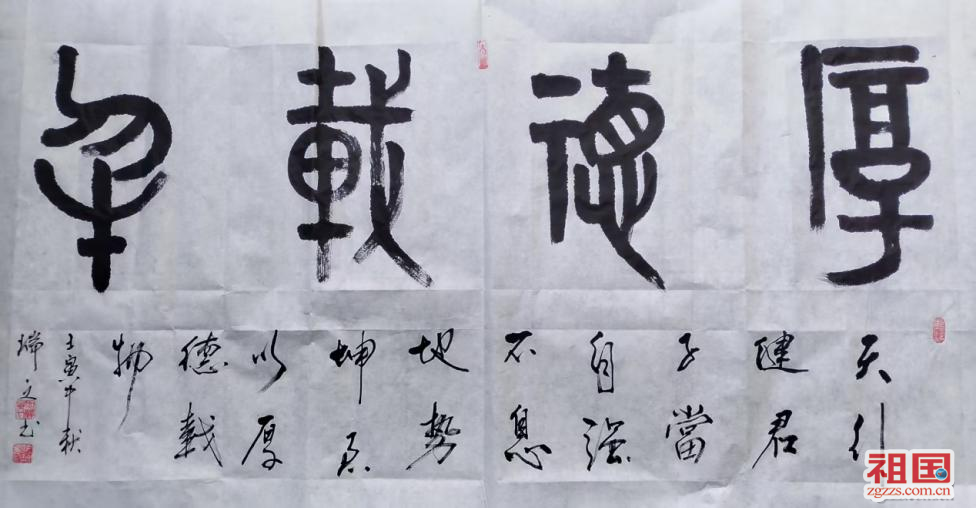 厚德載物
天行
健君
子當
自强
不息
地勢
坤君
以厚
德載
物
壬寅中秋
瑞文书
祖国
zgzzs.com.cn